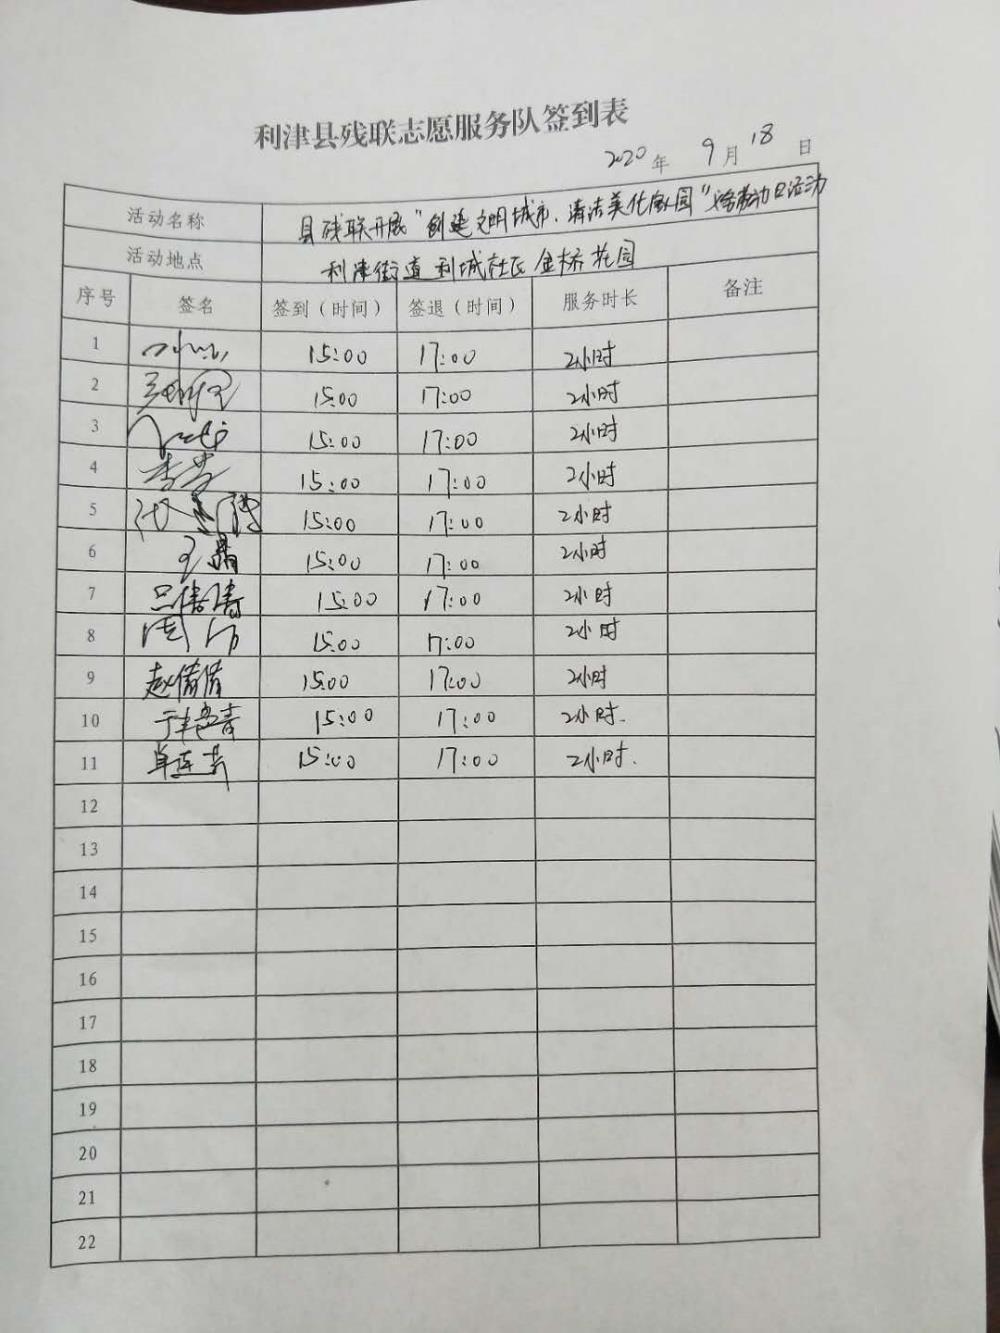 利津县残联志愿服务队签到表
2020年 9月18日
活动名称 县残联开展"创建文明城市、清洁美化家园"义务劳动日活动
活动地点 利津街道利城社区金桥花园
序号 签名 签到（时间） 签退（时间） 服务时长 备注
1 15:00 17:00 2小时
2 15:00 17:00 2小时
3 15:00 17:00 2小时
4 李芳 15:00 17:00 2小时
5 15:00 17:00 2小时
6 王晶 15:00 17:00 2小时
7 吕倩倩 15:00 17:00 2小时
8 15:00 17:00 2小时
9 赵倩倩 15:00 17:00 2小时
10 15:00 17:00 2小时.
11 15:00 17:00 2小时.
12
13
14
15
16
17
18
19
20
21
22